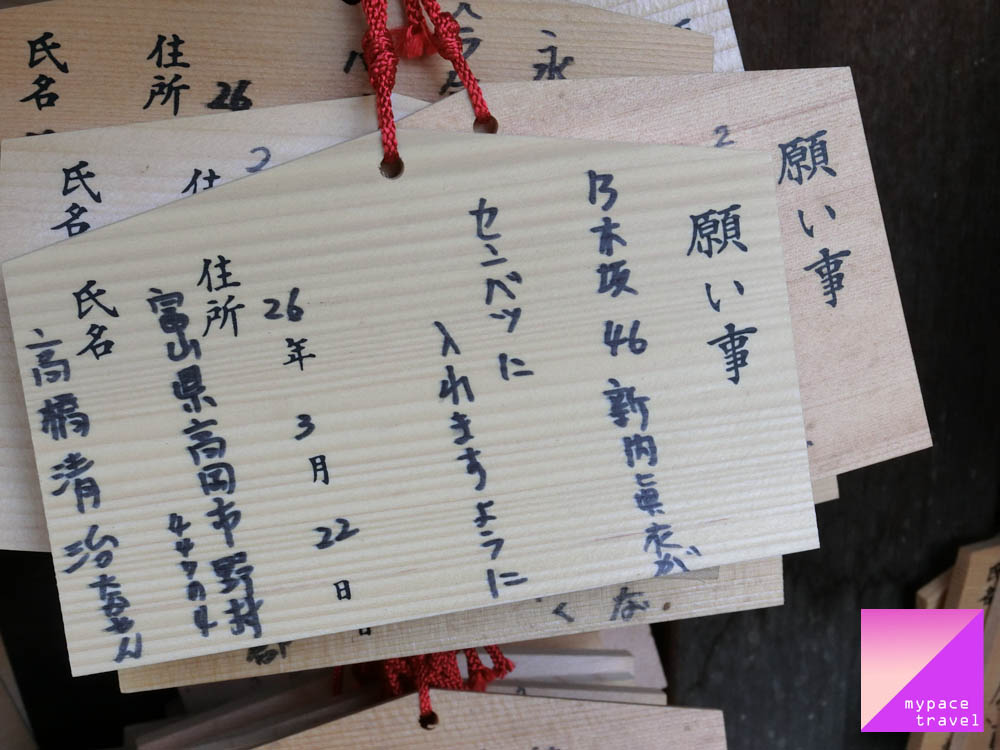 願い事
乃木坂 46 新内眞衣が
センバツに
入れますように
26年 3月 22日
住所
富山県高岡市野村
氏名
高橋清治
願い事
2
な
く
氏名
住
2
氏名
住所
26
永
mypace
travel